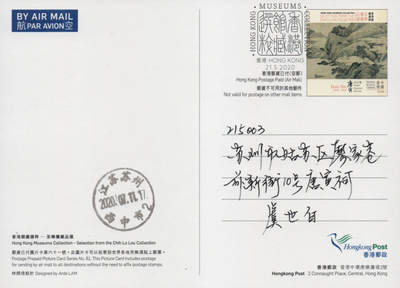 BY AIR MAIL
航 PAR AVION 空
HONG KONG MUSEUMS COLLECTION
香港館藏選粹
香港 HONG KONG
21.5.2020
香港郵資已付(空郵)
Hong Kong Postage Paid (Air Mail)
郵資不可用於其他郵件
Not valid for postage on other mail items
215003
苏州市姑苏区廖家巷
前新街10号唐寅祠
虞世自
2020.07.11.17
香港館藏選粹 — 至樂樓藏品選
Hong Kong Museums Collection – Selection from the Chih Lo Lou Collection
Postage Prepaid Picture Card Series No. 61. This Picture Card includes postage
for sending by air mail to all destinations without the need to affix postage stamps.
Designed by Arde LAM
Hongkong Post
香港郵政
香港郵政 香港中環康樂廣場2號
Hongkong Post 2 Connaught Place, Central, Hong Kong